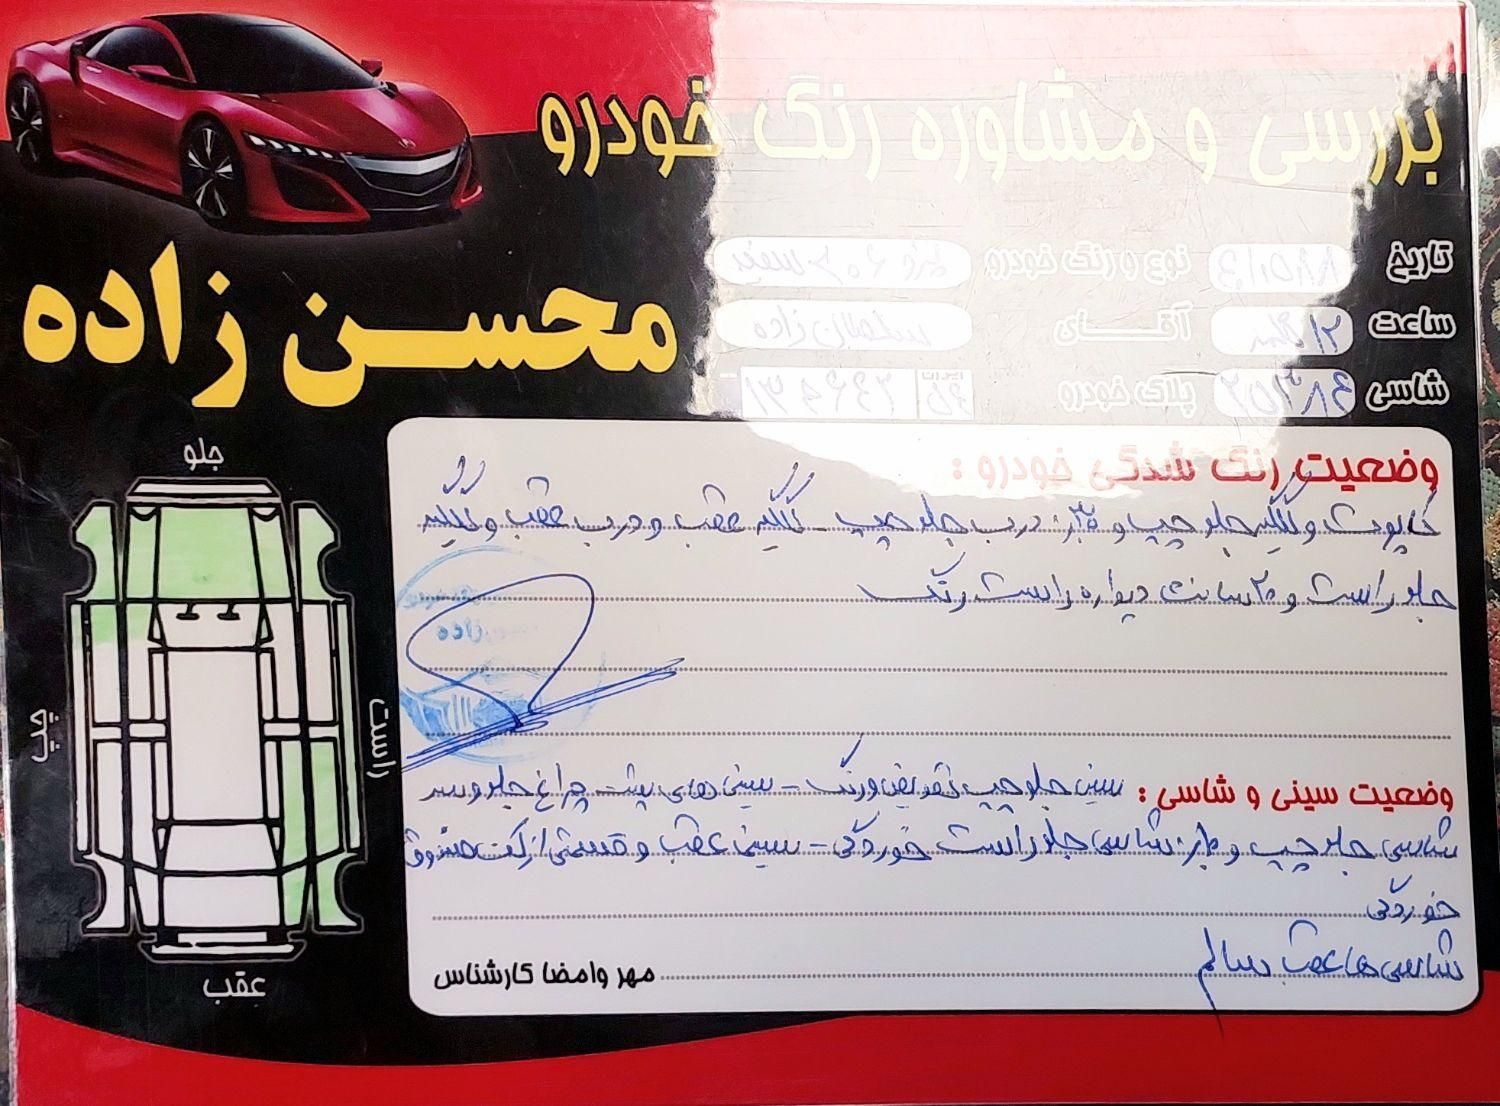 بررسی و مشاوره رنگ خودرو
محسن زاده
تاریخ
نوع و رنگ خودرو
ساعت ۱۲
آقـــــای سلطان زاده
شاسی
پلاک خودرو ایران
وضعیت رنگ شدگی خودرو :
کاپوت و گلگیر جلو چپ و ۳۰٪ درب جلو چپ - گلگیر عقب و درب عقب و گلگیر
جلو راست و ۲۰ سانت دیواره راست رنگ
وضعیت سینی و شاسی : سینی جلو چپ تعویض و رنگ - سینی های پشت چراغ جلو و سر
شاسی جلو چپ و ۱۰٪ شاسی جلو راست خوردگی - سینی عقب و قسمتی از کف صندوق
خوردگی
شاسی ها عقب سالم
مهر وامضا کارشناس
جلو
چپ
راست
عقب